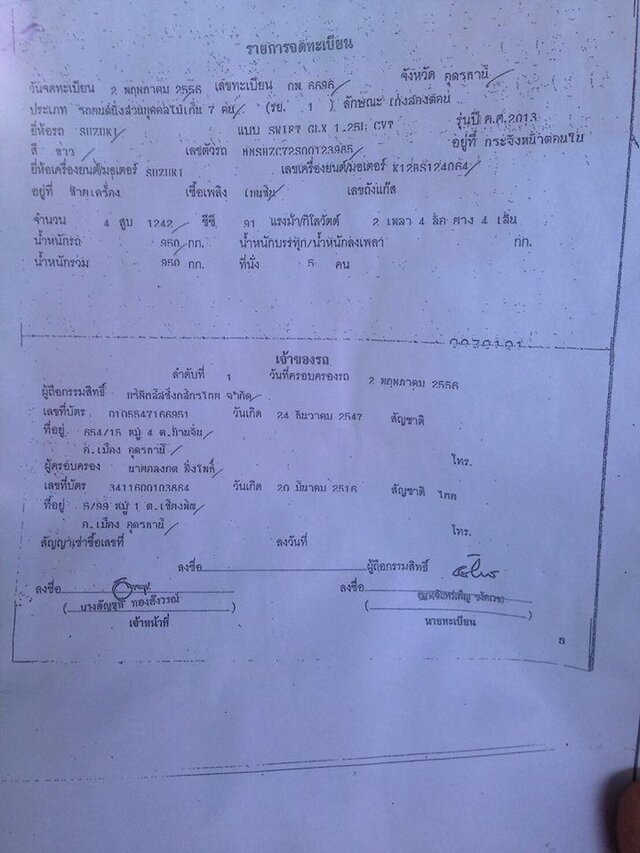 รายการจดทะเบียน
วันจดทะเบียน 2 พฤษภาคม 2556 เลขทะเบียน กพ 6696 จังหวัด อุดรธานี
ประเภท รถยนต์นั่งส่วนบุคคลไม่เกิน 7 คน (รย. 1 ) ลักษณะ เก๋งสองตอน
ยี่ห้อรถ SUZUKI แบบ SWIFT GLX 1.25L CVT รุ่นปี ค.ศ.2013
สี ขาว เลขตัวรถ MMSHZC72S00123985 อยู่ที่ กระจังหน้าตอนใน
ยี่ห้อเครื่องยนต์/มอเตอร์ SUZUKI เลขเครื่องยนต์/มอเตอร์ K12BS124064
อยู่ที่ ซ้ายเครื่อง เชื้อเพลิง เบนซิน เลขถังแก๊ส
จำนวน 4 สูบ 1242 ซีซี 91 แรงม้า/กิโลวัตต์ 2 เพลา 4 ล้อ ยาง 4 เส้น
น้ำหนักรถ 950 กก. น้ำหนักบรรทุก/น้ำหนักลงเพลา กก.
น้ำหนักรวม 950 กก. ที่นั่ง 5 คน
เจ้าของรถ
ลำดับที่ 1 วันที่ครอบครองรถ 2 พฤษภาคม 2556
ผู้ถือกรรมสิทธิ์ บริษัทลีสซิ่งกสิกรไทย จำกัด
เลขที่บัตร 0105547166951 วันเกิด 24 ธันวาคม 2547 สัญชาติ
ที่อยู่ 654/15 หมู่ 4 ต.บ้านจั่น
อ.เมือง อุดรธานี โทร.
ผู้ครอบครอง
เลขที่บัตร 3411600103864 วันเกิด 20 มีนาคม 2516 สัญชาติ ไทย
ที่อยู่ 5/99 หมู่ 1 ต.เชียงพิณ
อ.เมือง อุดรธานี โทร.
สัญญาเช่าซื้อเลขที่ ลงวันที่
ลงชื่อ ผู้ถือกรรมสิทธิ์
ลงชื่อ ลงชื่อ
เจ้าหน้าที่ นายทะเบียน
5